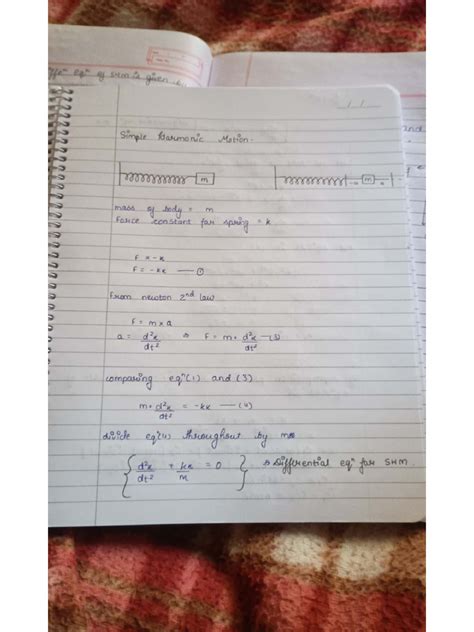 eqⁿ of SHM is given
Simple Harmonic Motion.
m
m
mass of body = m
Force constant for spring = k
F ∝ -x
F = -kx —①
From newton 2nd law
F = m x a
a = d²x/dt² ⇒ F = m· d²x/dt² —(3)
comparing eqⁿ(1) and (3)
m· d²x/dt² = -kx —(4)
divide eqⁿ(4) throughout by m
{ d²x/dt² + kx/m = 0 } ⇒ Differential eqⁿ for SHM.
and